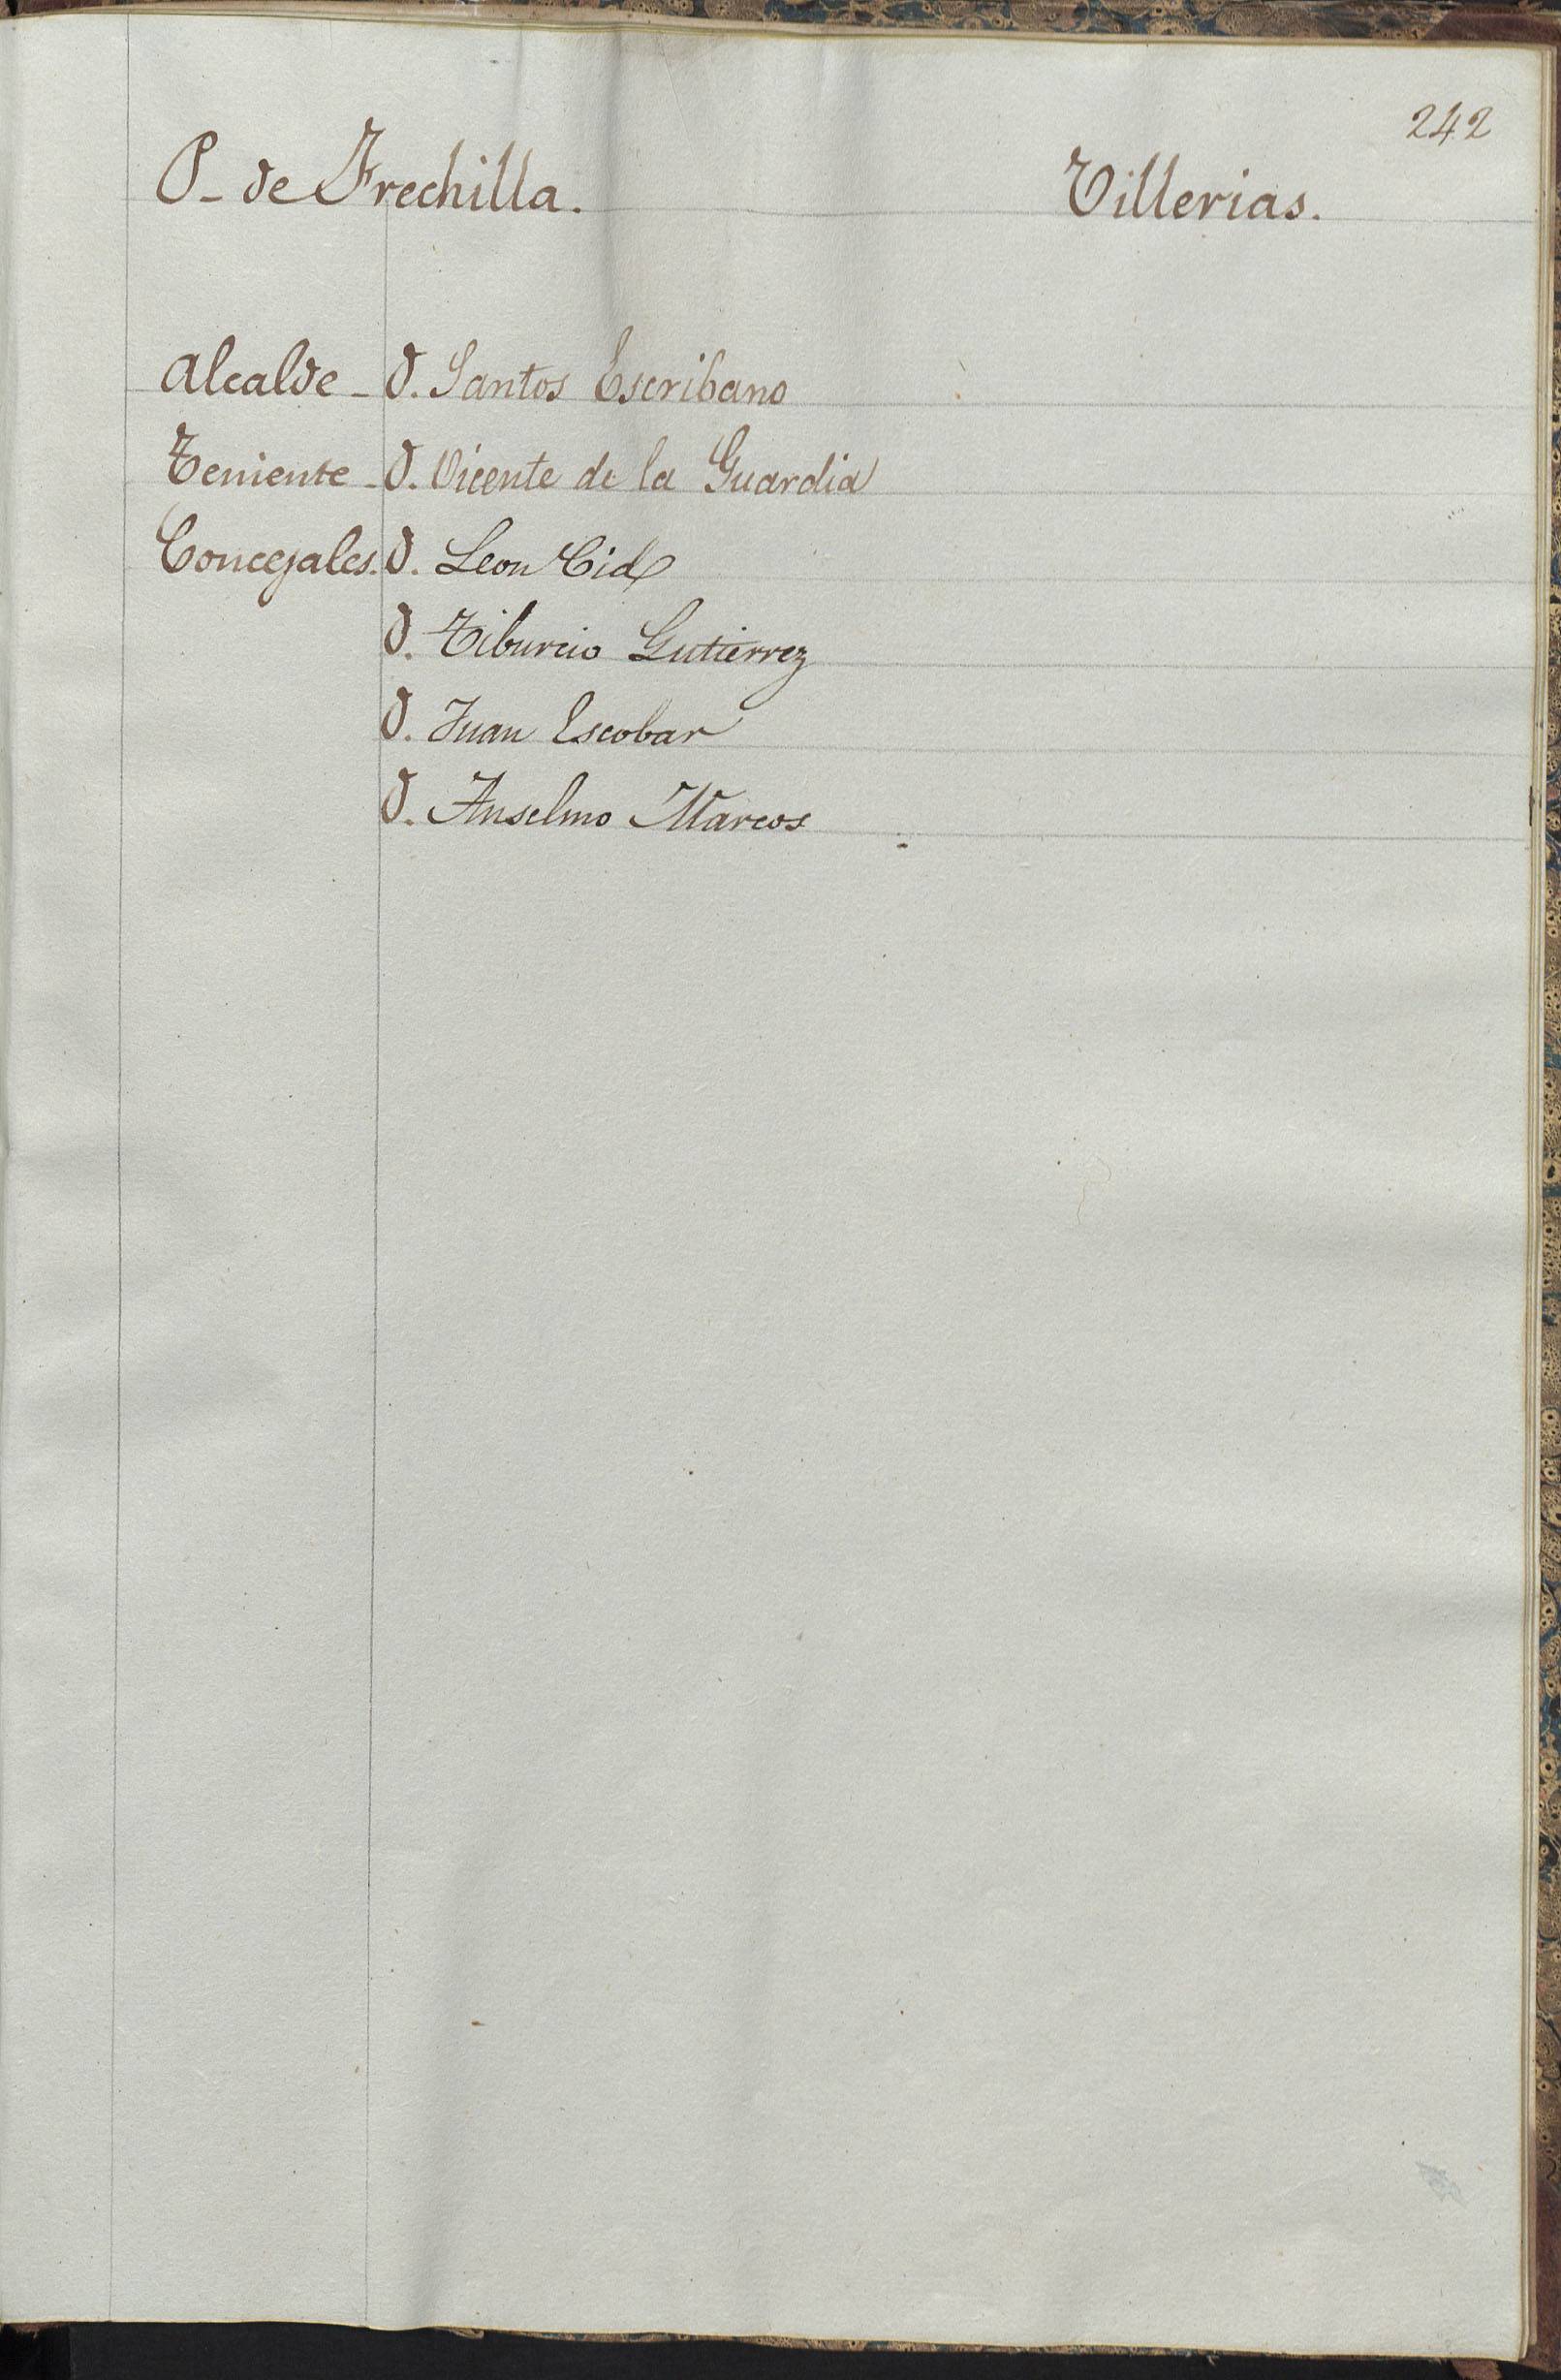 242
P- de Frechilla. Villerias.
Alcalde - D. Santos Escribano
Teniente - D. Vicente de la Guardia
Concejales. D. Leon Cid
D. Tiburcio Gutierrez
D. Juan Escobar
D. Anselmo Marcos